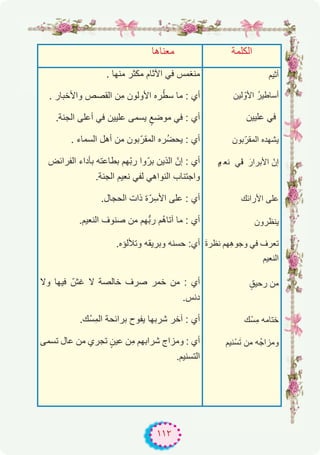 الكلمة معناها
أثيم منغمس في الآثام مكثر منها .
أساطيرُ الأوّلين أي : ما سطّره الأولون مِن القصص والأخبار .
في عليين أي : في موضعٍ يسمى عليين في أعلى الجنة.
يشهده المقرّبون أي : يحضُره المقرّبون من أهل السماء .
إنَّ الأبرارَ في نعيم أي : إنَّ الذين برّوا ربَّهم بطاعته بأداء الفرائض
واجتناب النواهي لفي نعيم الجنة.
على الأرائك أي : على الأسِرّة ذات الحجال.
ينظرون أي : ما آتاهُم ربُّهم من صنوف النعيم.
تعرف في وجوههم نظرة أي: حسنه وبريقه وتلألؤه.
النعيم
من رحيقٍ أي : من خمر صرف خالصة لا غشّ فيها ولا
دنس.
ختامه مِسْك أي : آخر شربها يفوح برائحة المِسْك.
ومزاجُه من تَسْنيم أي : ومزاج شرابهم مِن عينٍ تجري من عال تسمى
التسنيم.
١١٢